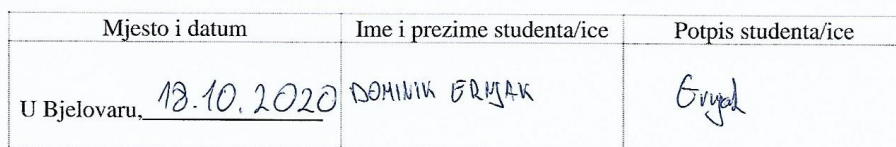 Mjesto i datum Ime i prezime studenta/ice Potpis studenta/ice
U Bjelovaru, 18.10.2020 DOMINIK GRNJAK Grnjak